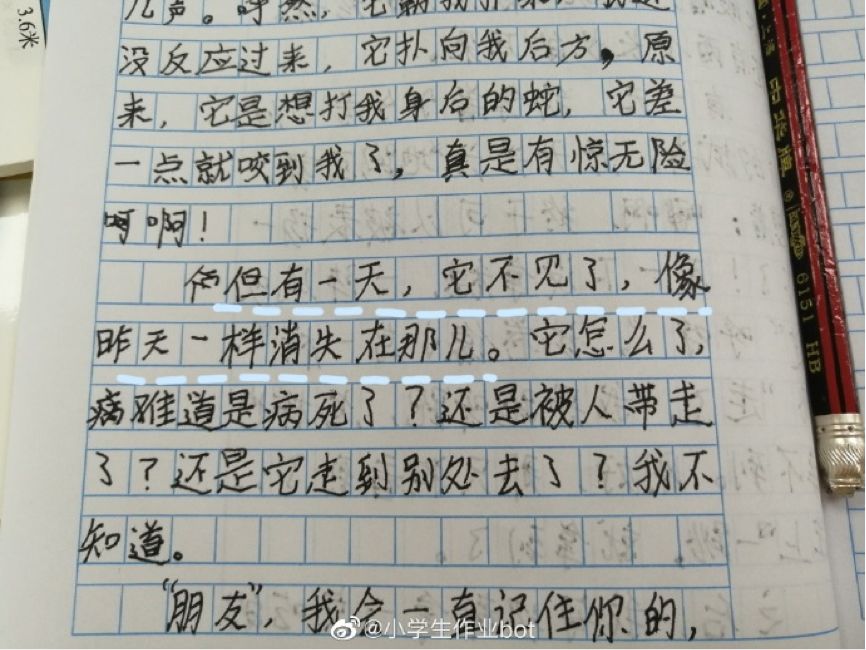 3.6米
没反应过来，它扑向我后方，原
来，它是想打我身后的蛇，它差
一点就咬到我了，真是有惊无险
啊！
但有一天，它不见了，像
昨天一样消失在那儿。它怎么了，
难道是病死了？还是被人带走
了？还是它走到别处去了？我不
知道。
“朋友”，我会一直记住你的，
中华牌
6151 HB
@小学生作业bot